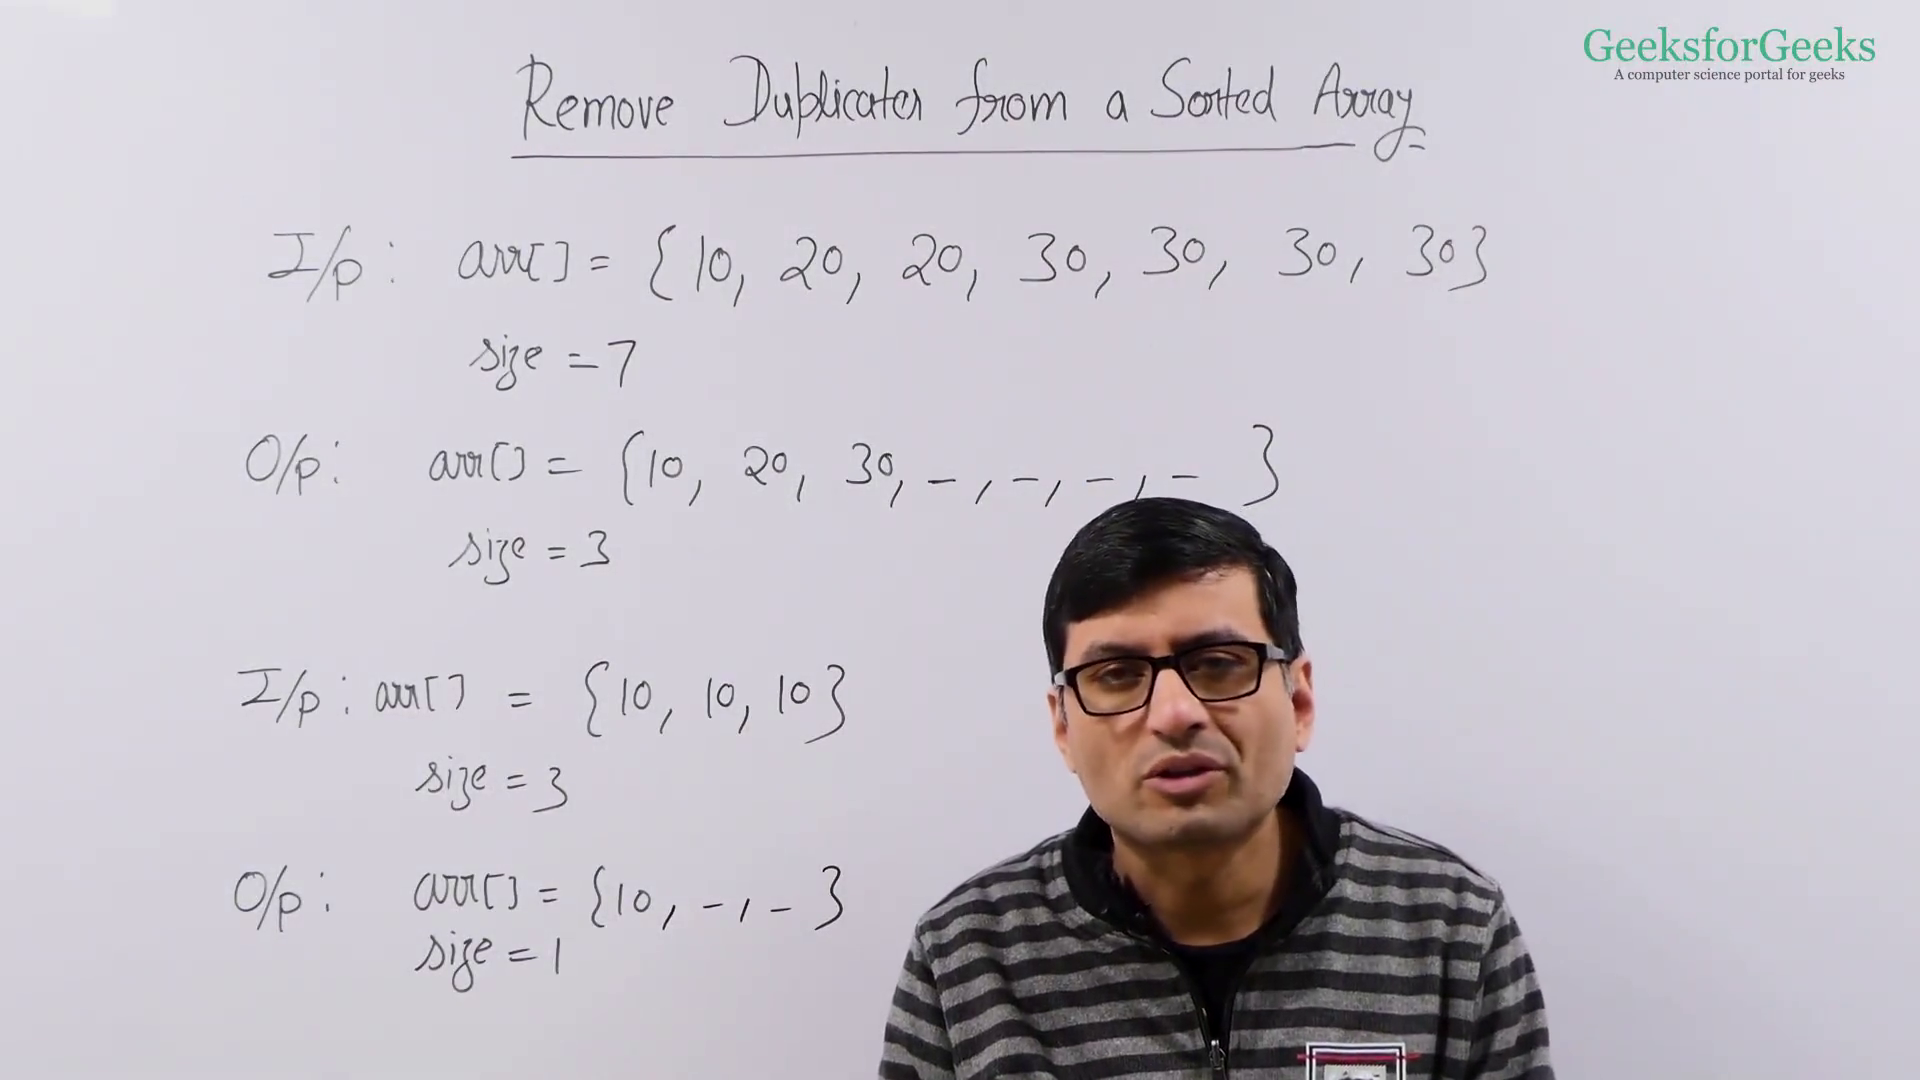 GeeksforGeeks
A computer science portal for geeks
Remove Duplicates from a Sorted Array
I/p: arr[] = {10, 20, 20, 30, 30, 30, 30}
size = 7
O/p: arr[] = {10, 20, 30, _, _, _, _ }
size = 3
I/p: arr[] = {10, 10, 10}
size = 3
O/p: arr[] = {10, _, _ }
size = 1